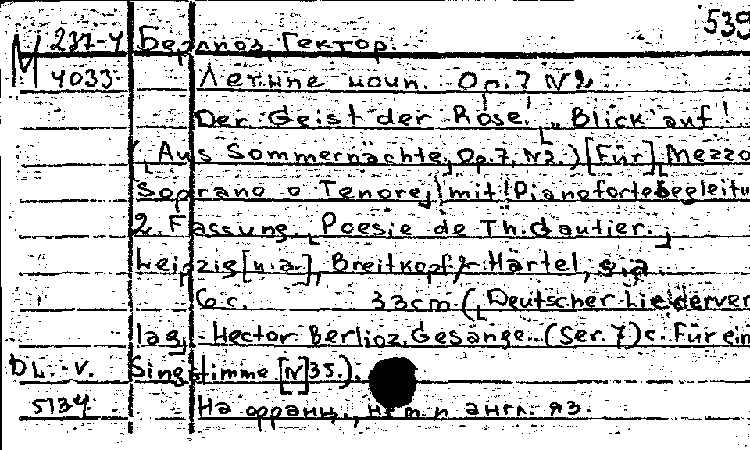 539
М 237-4 Берлиоз, Гектор.
4033 Летние ночи. Op.7 №2
Der Geist der Rose. „Blick auf!
(Aus Sommernächte, Op.7, N2.) [Für] Mezzo
Soprano o Tenore, mit Pianofortebegleitu
2. Fassung. Poesie de Th. Gautier.
Leipzig [u.a.], Breitkopf & Härtel, s.a.
6 с. 33cm (Deutscher Liederver
lag. - Hector Berlioz, Gesänge... (Ser. 7) c. Für ein
D.L.-v. Singstimme [N 35.).
5134 На франц., нем. и англ. яз.